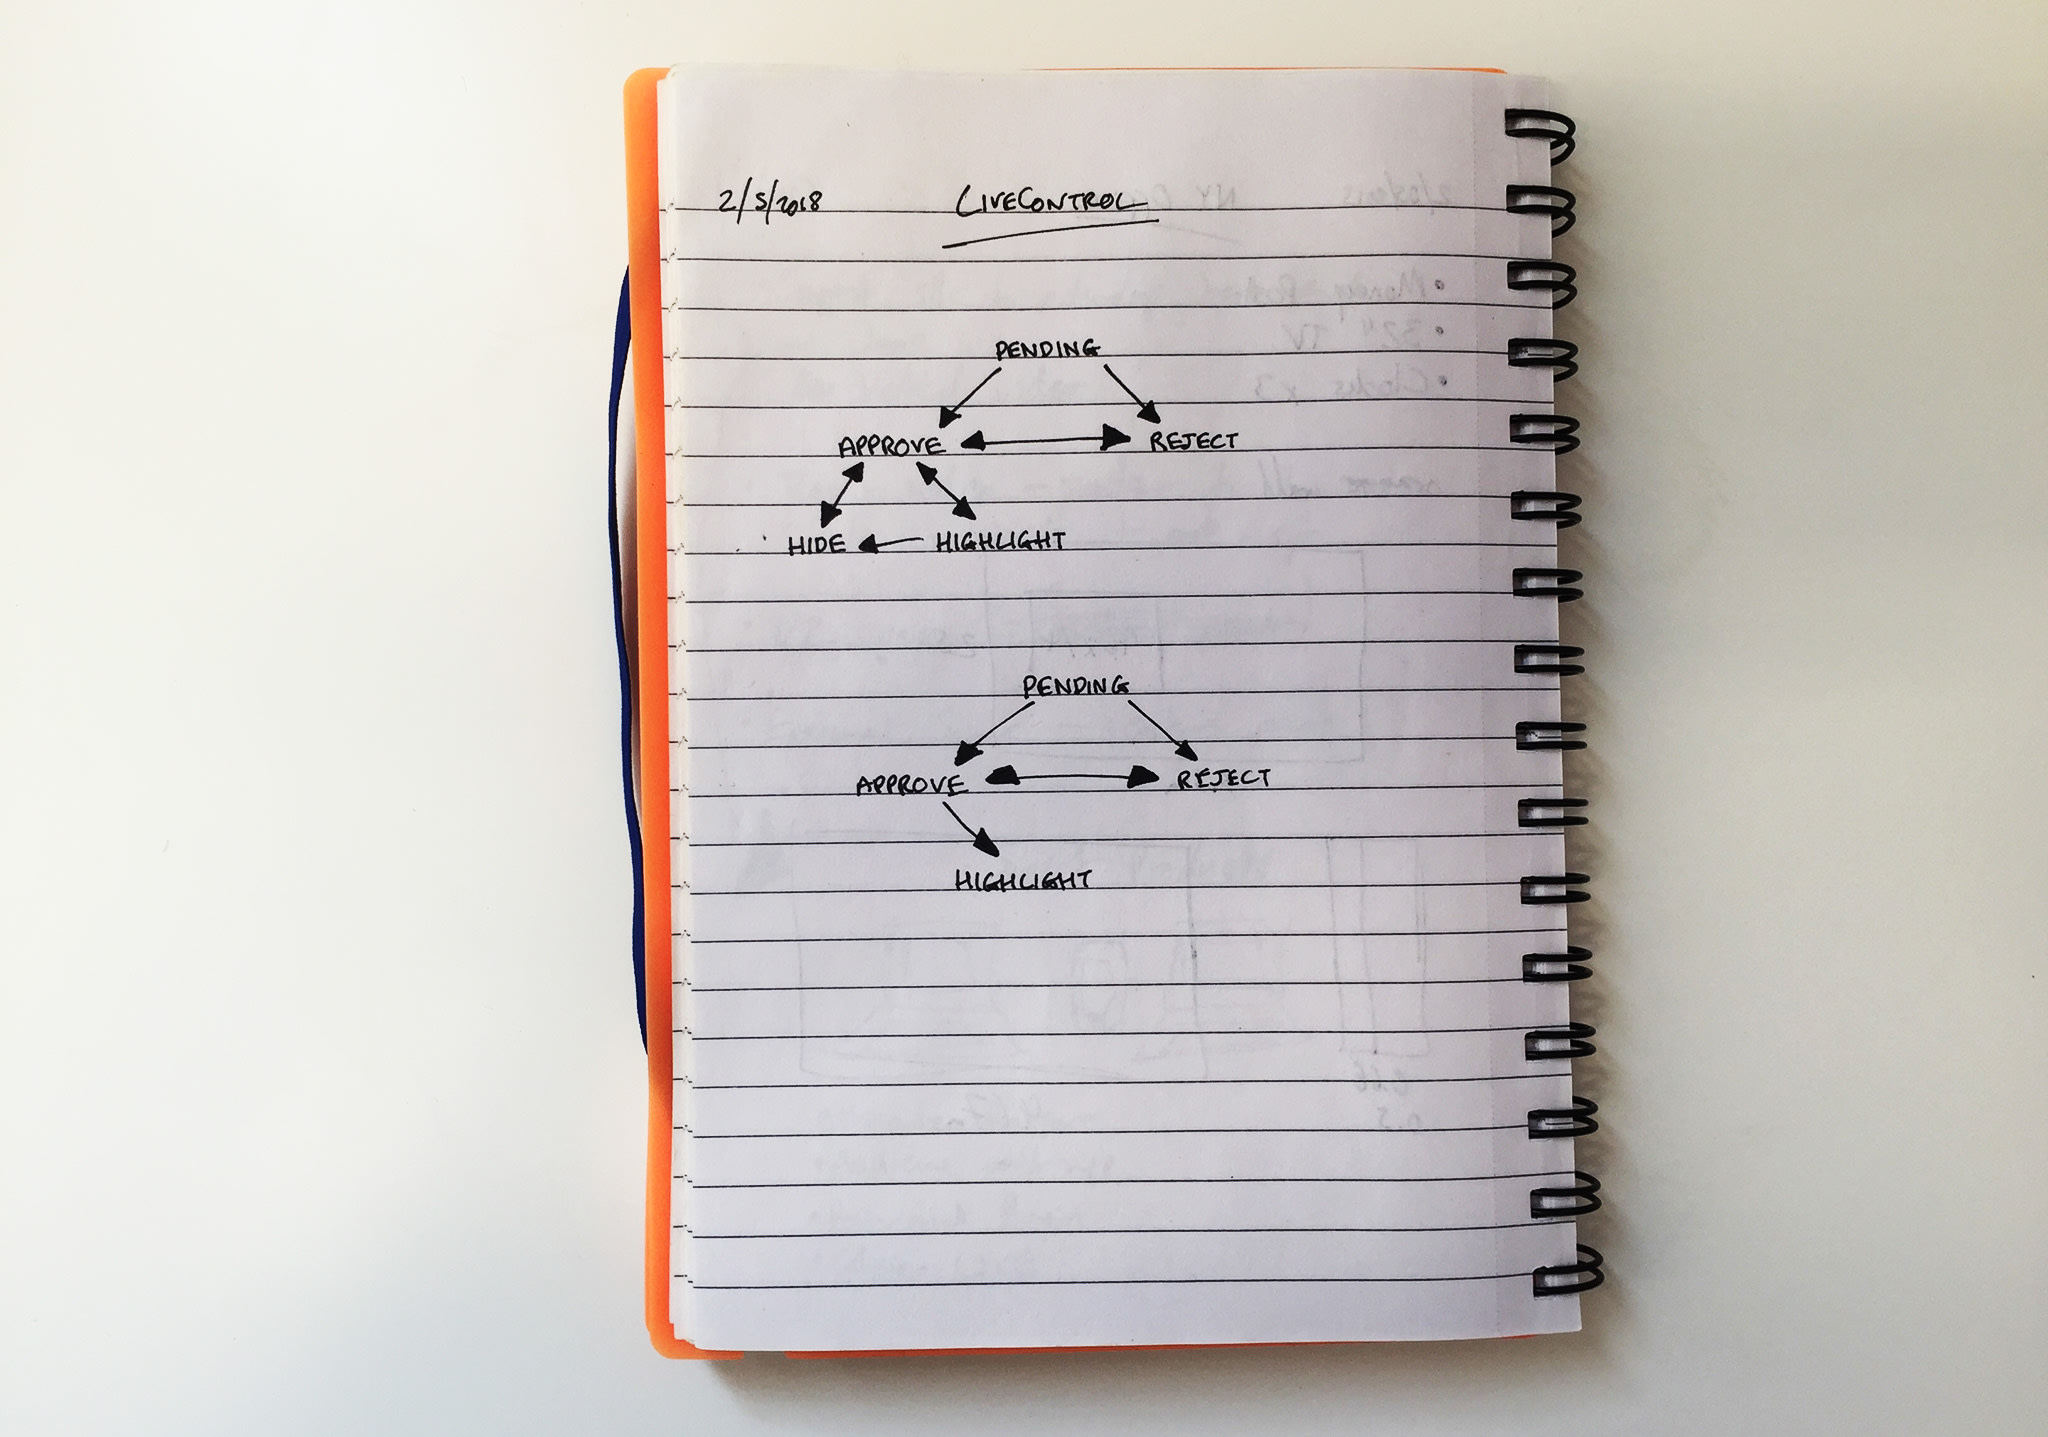 2/5/2018 LIVECONTROL
PENDING
APPROVE REJECT
HIDE HIGHLIGHT
PENDING
APPROVE REJECT
HIGHLIGHT